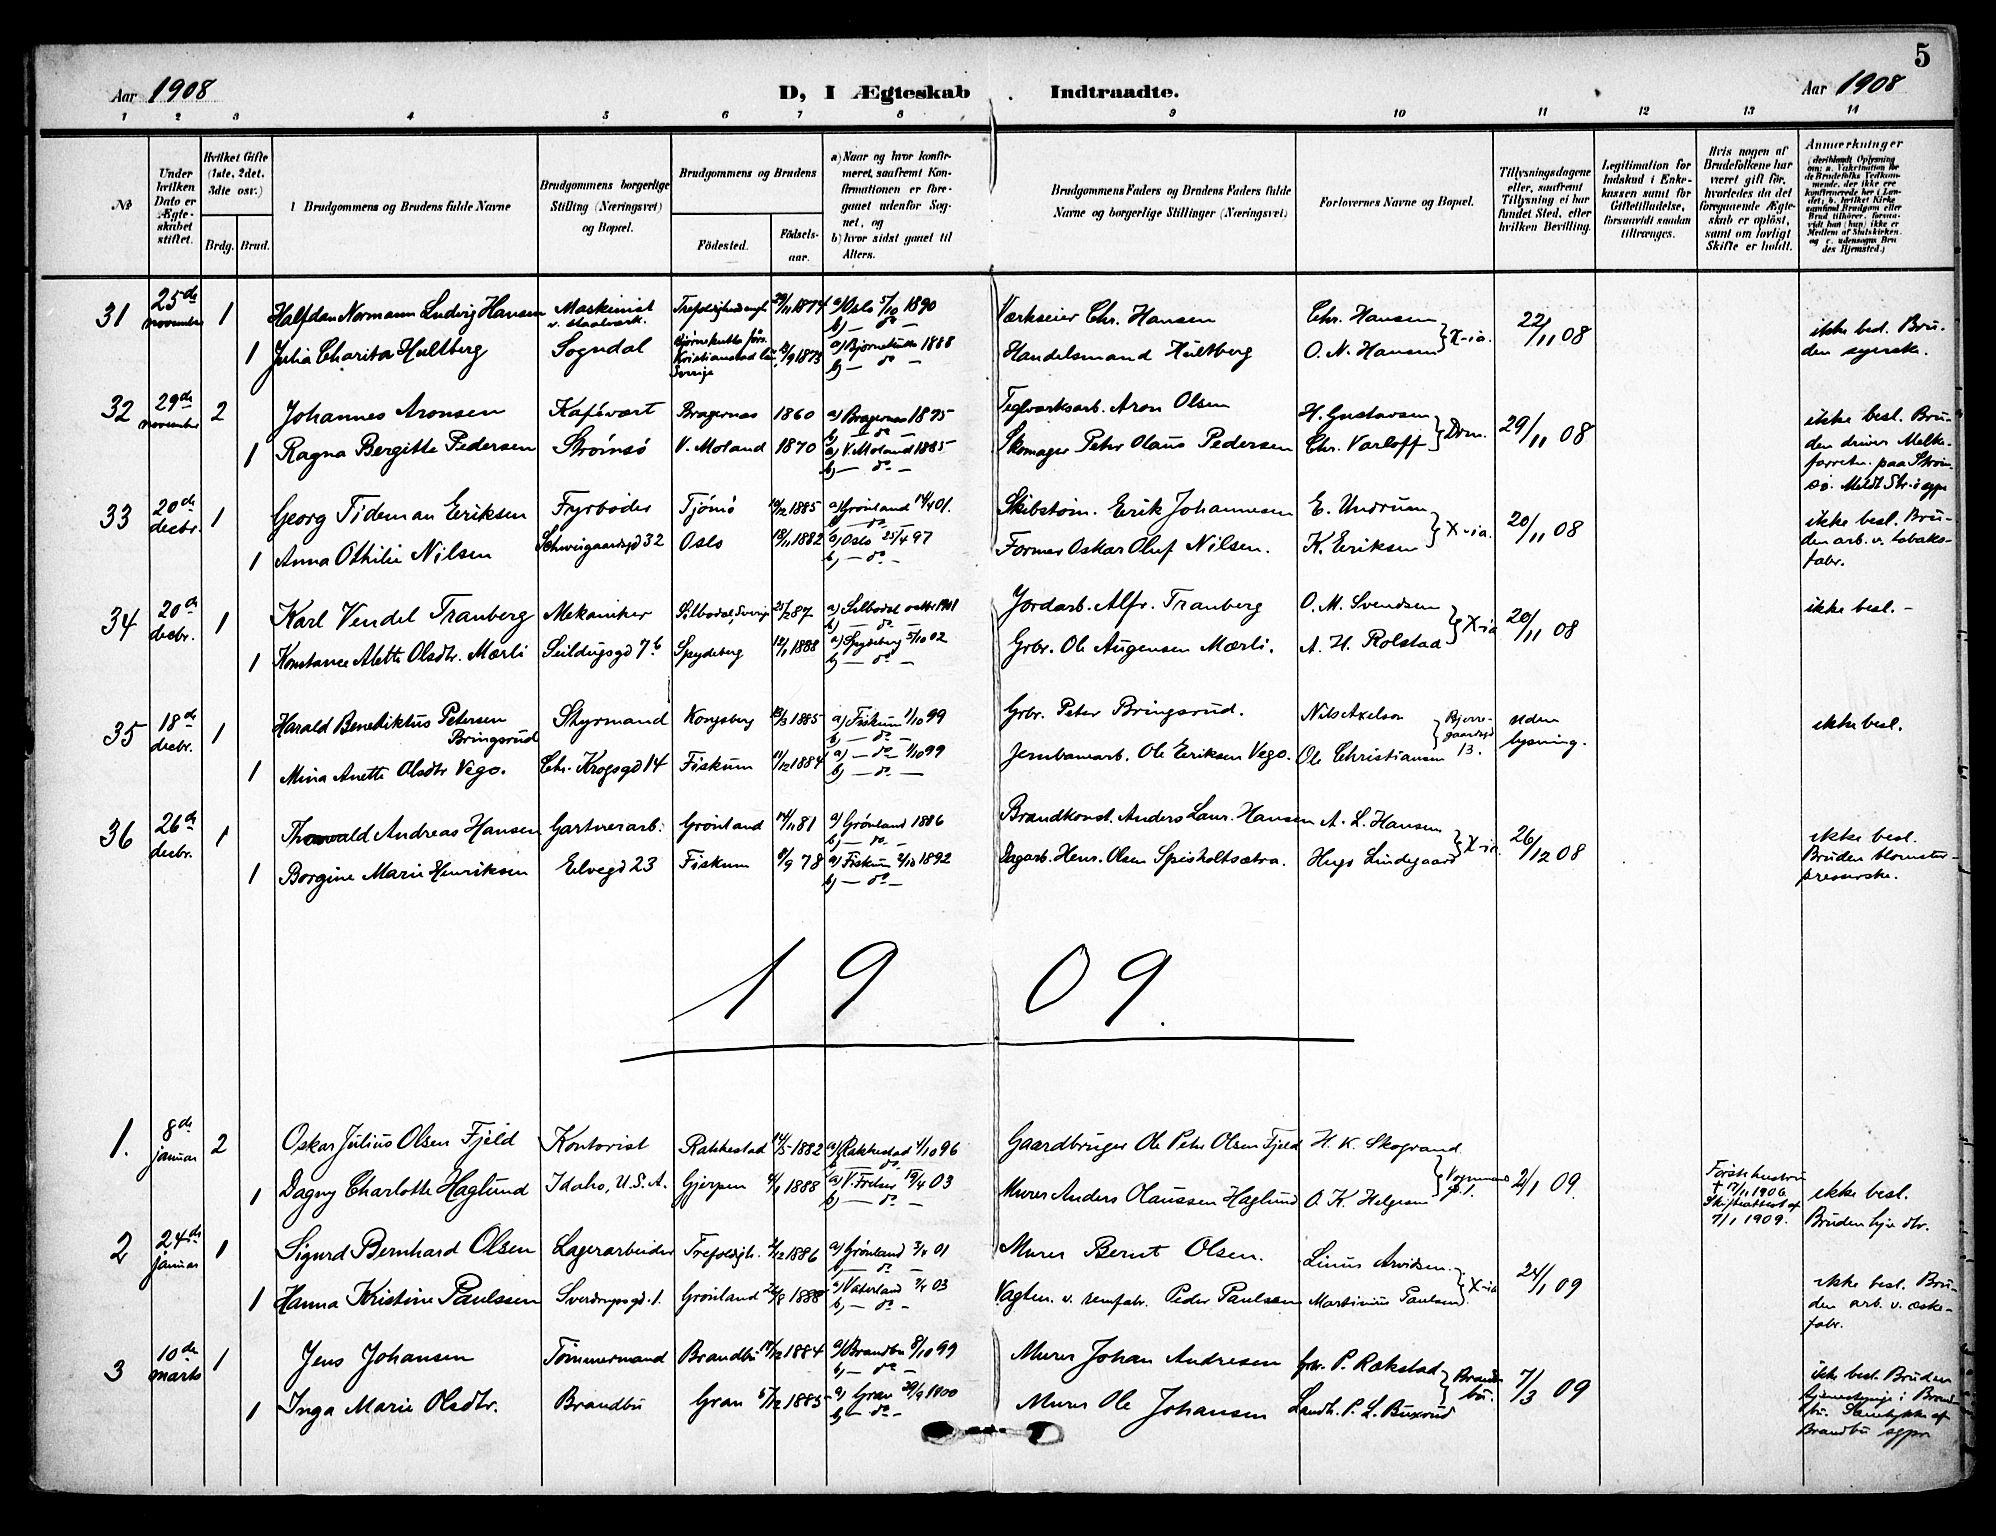 5
Aar 1908
D, I Ægteskab Indtraadte.
Aar 1908
1 2 3 4 5 6 7 8 9 10 11 12 13 14
No
Under hvilken Dato er Ægteskabet stiftet.
Hvilket Gifte (1ste, 2det, 3die osv.)
Brdg. Brud.
Brudgommens og Brudens fulde Navne
Brudgommens borgerlige Stilling (Næringsvei) og Bopæl.
Brudgommens og Brudens
Fødested.
Fødselsaar.
a) Naar og hvor konfirmeret, saafremt Konfirmationen er foregaaet udenfor Sognet, og
b) hvor sidst gaaet til Alters.
Brudgommens Faders og Brudens Faders fulde Navne og borgerlige Stillinger (Næringsvei)
Forlovernes Navne og Bopæl.
Tillysningsdagene eller, saafremt Tillysning ei har fundet Sted, efter hvilken Bevilling.
Legitimation for Indskud i Enkekassen samt for Giftetilladelse, forsaavidt saadan tiltrænges.
Hvis nogen af Brudefolkene har været gift før, hvorledes da det foregaaende Ægteskab er opløst, samt om lovligt Skifte er holdt.
Anmærkninger
31 25de november 1 Halfdan Normann Ludvig Hansen Maskinist v. staalverk. 29/11 1874 a) Oslo 5/10 1890 b) — do — Værkseier Chr. Hansen Chr. Hansen X-ia. 22/11 08 ikke besl. Bruden svensk.
1 Julia Charita Hultberg Sogndal Kristianstad Sverige 1873 1888 b) — do — Handelsmand Hultberg O. N. Hansen
32 29de november 2 Johannes Aronsen Kafévært Bragernæs 1860 a) Bragernæs 1875 b) do — Teglværksarb. Aron Olsen H. Gustavsen Drm. 29/11 08 ikke besl. Bruden driver Melkeforretn. paa Strømsø.
1 Ragna Bergitte Pedersen Strømsø V. Moland 1870 a) V. Moland 1885 b) — do — Skomager Peter Olaus Pedersen Chr. Varloff
33 20de decbr. 1 Georg Tideman Eriksen Fyrbøder Tjømø 1885 a) Grønland 01. b) — do Skibstøm. Erik Johannesen E. Undrum X-ia. 20/11 08 ikke besl. Bruden arb. v. tobaksfabr.
1 Anna Othilie Nilsen Schweigaardsgd 32 Oslo 1882 a) Oslo 25/4 97 b) — do — Former Oskar Oluf Nilsen. K. Eriksen
34 20de decbr. 1 Karl Vendel Tranberg Mekaniker Silbodal, Sverige 87 b) — do — Jordarb. Alfr. Tranberg O. M. Svendsen X-ia 20/11 08 ikke besl. -
1 Konstance Alette Olsdtr. Mærli Seildugsgd 7b Spydeberg 1888 a) Spydeberg 5/10 02 b) — do — Grbr. Ole Augensen Mærli. A. H. Rolstad
35 18de decbr. 1 Harald Benediktus Petersen Bringsrud Styrmand Kongsberg 1885 a) Fiskum 1/10 99 b) — do — Grbr. Peter Bringsrud. Nils Axelson 13. uden lysning. ikke besl.
1 Mina Anette Olsdtr Vego. Chr. Krogsgd 14 Fiskum 1884 a) — do — 1/10 99 b) — do — Jernbanearb. Ole Eriksen Vego. Ole Christiansen
36 26de decbr. 1 Thorvald Andreas Hansen Gartnerarb. Grønland 81 a) Grønland 1886 b) — do — Brandkonst. Anders Laur. Hansen A. L. Hansen X-ia 26/12 08 ikke besl. Bruden blomsterpresserske.
1 Borgine Marie Henriksen Elvegd 23 Fiskum 78 a) Fiskum 2/10 1892 b) — do — Dagarb. Henr. Olsen Spisholtsætra. Hugo Lindegaard
1909.
1. 8de januar 2 Oskar Julius Olsen Fjeld Kontorist Rakkestad 14/5 1882 a) Rakkestad 4/10 96 b) do — Gaardbruger Ole Peter Olsen Fjeld H. K. Skogrand 2/1 09. Første hustru + 17/11 1906 Skifteattest af 7/1 1909. ikke besl. Bruden hjv. dtr.
1 Dagny Charlotte Haglund Idaho, U.S.A. Gjerpen 1888 19/4 03 b) — do — Murer Anders Olaussen Haglund O. K. Helgesen
2 24de januar 1 Sigurd Bernhard Olsen Lagerarbeider Trefoldigh. 1886 a) Grønland 01 b) — do — Murer Bernt Olsen. Linus Arvidsen X-ia 24/1 09 ikke besl. Bruden arb. v. æskefabr.
1 Hanna Kristine Paulssen Sverdrupsgd. 1. Grønland 26/8 1888 a) Vaterland 03 b) — do — Vagtm. v. remfabr. Peder Paulsen Martinius Paulsen
3 10de marts 1 Jens Johansen Tømmermand Brandbu 1884 a) Brandbu 8/10 99 b) — do — Murer Johan Andresen Grbr. P. Rækstad Brandbu. 7/3 09 ikke besl. Bruden tjenestepige i Brandbu.
1 Inga Marie Olsdtr. Brandbu Gran 1885 a) Gran 30/9 1900 b) — do — Murer Ole Johansen Landh. P. L. Buxrud